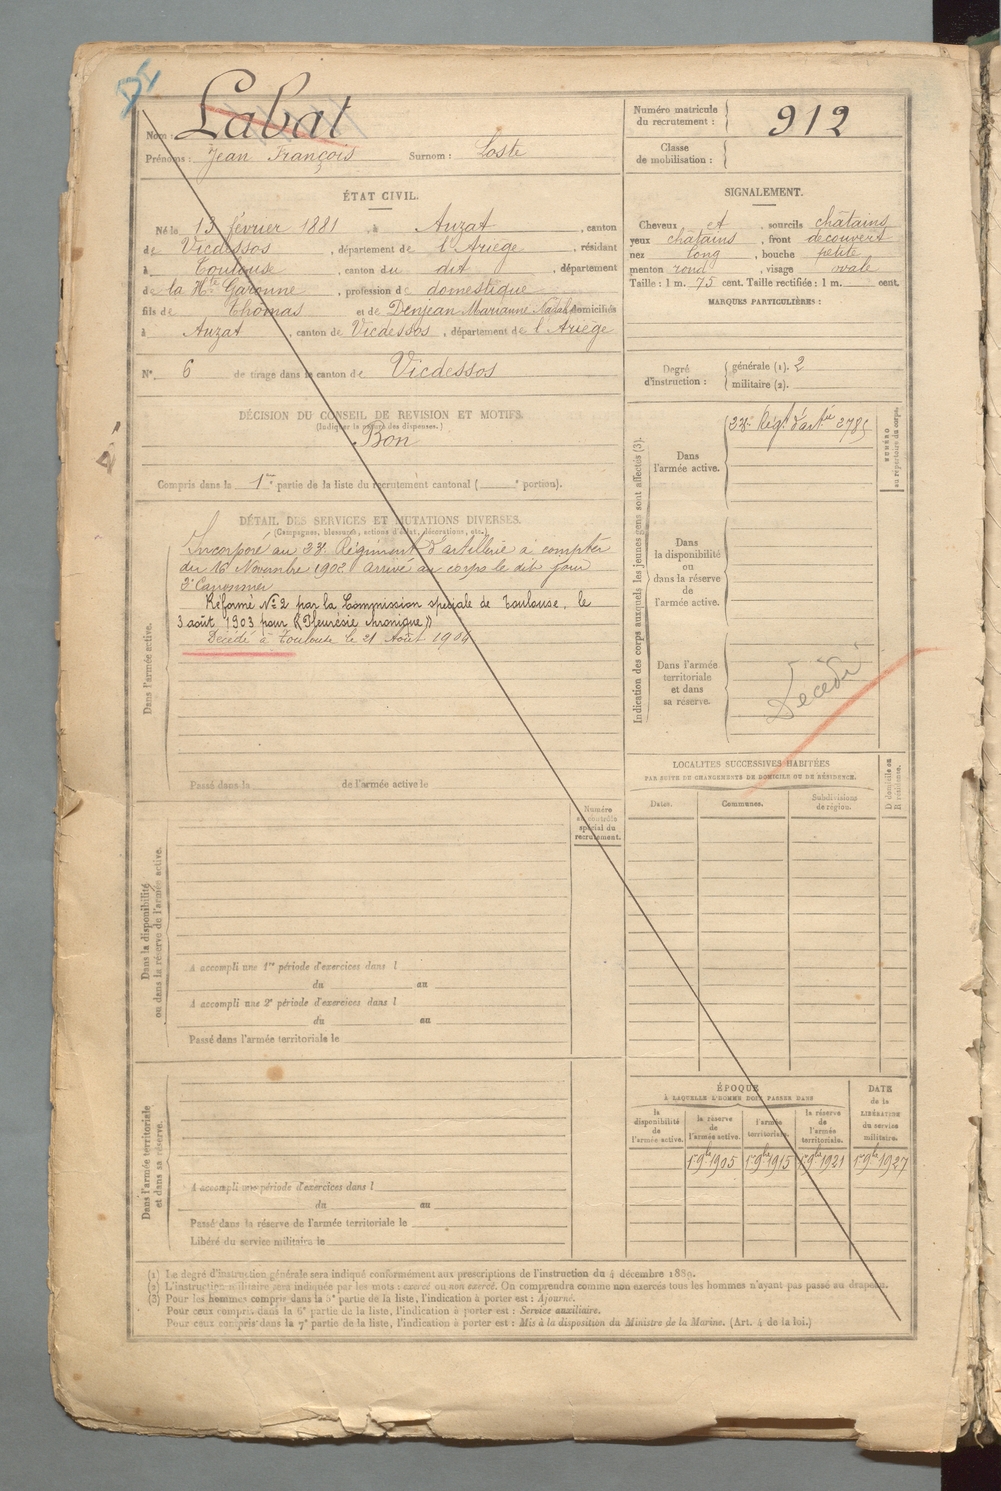 Nom : Labat
Prénoms : Jean François Surnom : Loste
Numéro matricule
du recrutement : 912
Classe
de mobilisation :
ÉTAT CIVIL.
Né le 13 février 1881, à Auzat, canton
de Vicdessos, département de l'Ariège, résidant
à Toulouse, canton du dit, département
de la Hte Garonne, profession de domestique
fils de Thomas et de Denjean Marianne domiciliés
à Auzat, canton de Vicdessos, département de l'Ariège
N° 6 de tirage dans le canton de Vicdessos
SIGNALEMENT.
Cheveux et, sourcils châtains
yeux châtains, front découvert
nez long, bouche petite
menton rond, visage ovale
Taille : 1 m. 75 cent. Taille rectifiée : 1 m. cent.
MARQUES PARTICULIÈRES :
Degré
d'instruction :
générale (1). 2
militaire (2).
DÉCISION DU CONSEIL DE REVISION ET MOTIFS.
(Indiquer la nature des dispenses.)
Bon
Compris dans la 1re partie de la liste du recrutement cantonal ( e portion).
DÉTAIL DES SERVICES ET MUTATIONS DIVERSES.
(Campagnes, blessures, actions d'éclat, décorations, etc.)
Dans l'armée active.
Incorporé au 23e Régiment d'artillerie à compter
du 16 Novembre 1902 arrivé au corps le dit jour
2e Canonnier
Réformé N° 2 par la Commission spéciale de Toulouse, le
3 août 1903 pour « Pleurésie chronique »
Décédé à Toulouse le 21 Août 1904
Passé dans la de l'armée active le
Indication des corps auxquels les jeunes gens sont affectés (3).
Dans
l'armée active.
23e Régt d'artie 2785
NUMÉRO
au répertoire du corps.
Dans
la disponibilité
ou
dans la réserve
de
l'armée active.
Dans l'armée
territoriale
et dans
sa réserve.
Décédé
LOCALITÉS SUCCESSIVES HABITÉES
PAR SUITE DE CHANGEMENTS DE DOMICILE OU DE RÉSIDENCE.
Dates.
Communes.
Subdivisions
de région.
D domicile ou
R résidence.
Dans la disponibilité
ou dans la réserve de l'armée active.
Numéro
au contrôle
spécial du
recrutement.
A accompli une 1re période d'exercices dans l
du au
A accompli une 2e période d'exercices dans l
du au
Passé dans l'armée territoriale le
Dans l'armée territoriale
et dans sa réserve.
A accompli une période d'exercices dans l
du au
Passé dans la réserve de l'armée territoriale le
Libéré du service militaire le
ÉPOQUE
À LAQUELLE L'HOMME DOIT PASSER DANS
la
disponibilité
de
l'armée active.
la réserve
de
l'armée active.
l'armée
territoriale.
la réserve
de
l'armée
territoriale.
DATE
de la
LIBÉRATION
du service
militaire.
1er 9bre 1905 1er 9bre 1915 1er 9bre 1921 1er 9bre 1927
(1) Le degré d'instruction générale sera indiqué conformément aux prescriptions de l'instruction du 4 décembre 1889.
(2) L'instruction militaire sera indiquée par les mots : exercé ou non exercé. On comprendra comme non exercés tous les hommes n'ayant pas passé au drapeau.
(3) Pour les hommes compris dans la 5e partie de la liste, l'indication à porter est : Ajourné.
Pour ceux compris dans la 6e partie de la liste, l'indication à porter est : Service auxiliaire.
Pour ceux compris dans la 7e partie de la liste, l'indication à porter est : Mis à la disposition du Ministre de la Marine. (Art. 4 de la loi.)